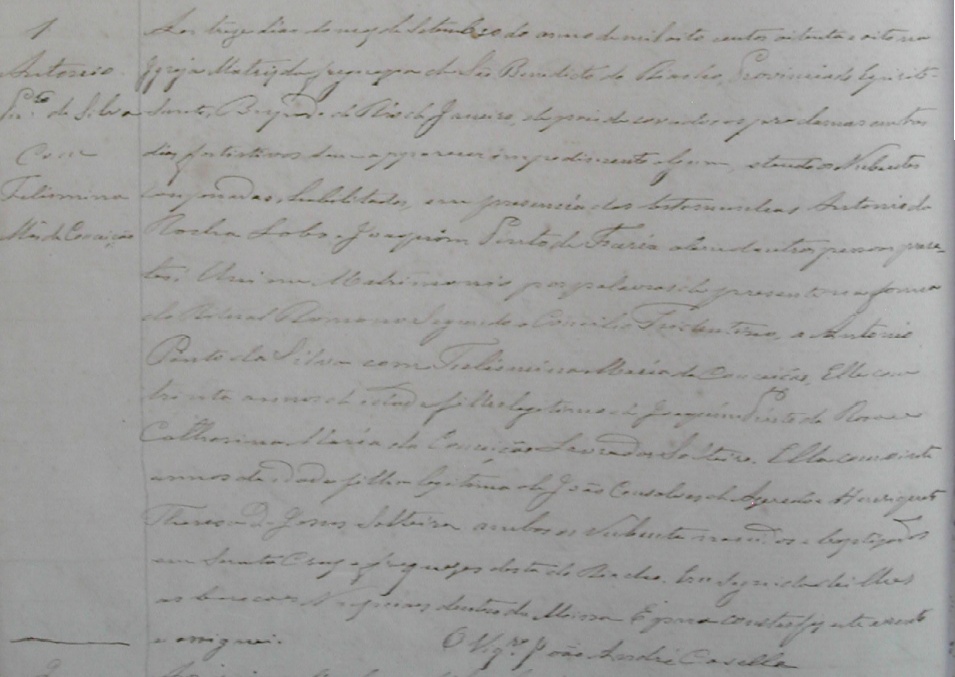 1
Antonio
Pto. da Silva
Com
Felismina
Ma. da Conceição
Aos treze dias do mez de Setembro do anno de mil oito centos oitenta e oito na
Igreja Matriz da freguezia de São Benedicto do Riacho, Provincia do Espirito
Santo, Bispado do Rio de Janeiro, depois de corridos os proclamas em tres
dias festivos sem apparecer impedimento algum, estando os Nubentes
habilitados, em presencia das testemunhas Antonio da
Rocha Lobo e Joaquim Pinto de Faria alem de outras pessoas
Uni em Matrimonio por palavras de presente na forma
do Ritual Romano segundo o Concilio Tridentino, a Antonio
Pinto da Silva com Felismina Maria da Conceição, Elle com
trinta annos de idade filho legitimo de Joaquim Pinto da Rosa e
Catharina Maria da Conceição Lavrador Solteiro. Ella com vinte
annos de idade filha legitima de João Gonsalves de Azeredo e Henriqueta
Theresa de Jesus Solteira ambos os Nubentes nascidos e baptizados
em Santa Cruz e freguezes desta do Riacho. Em seguida dei lhes
as bencoes Nupciaes dentro da Missa. E para constar fiz este assento
e assignei.
O Vigro. João André Casella
2